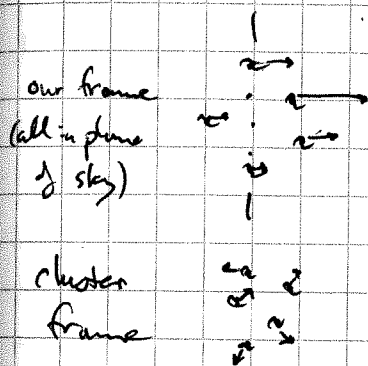 our frame
(all in plane
of sky)
cluster
frame